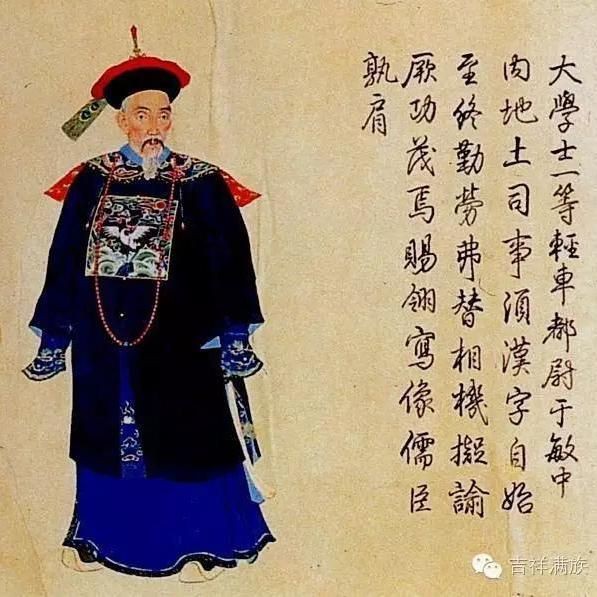 大學士一等輕車都尉于敏中
內地土司事須漢字自始
至終勤勞弗替相機擬諭
厥功茂焉賜翎寫像儒臣
孰肩
吉祥满族